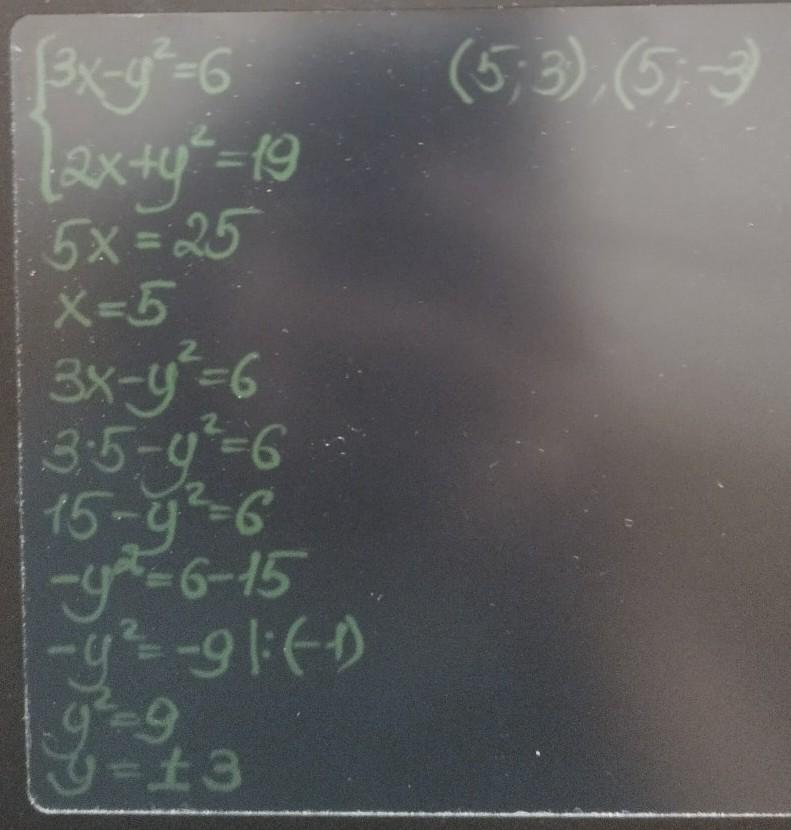 3x-y²=6
2x+y²=19
5x=25
x=5
3x-y²=6
3·5-y²=6
15-y²=6
-y²=6-15
-y²=-9|:(-1)
y²=9
y=±3
(5;3),(5;-3)